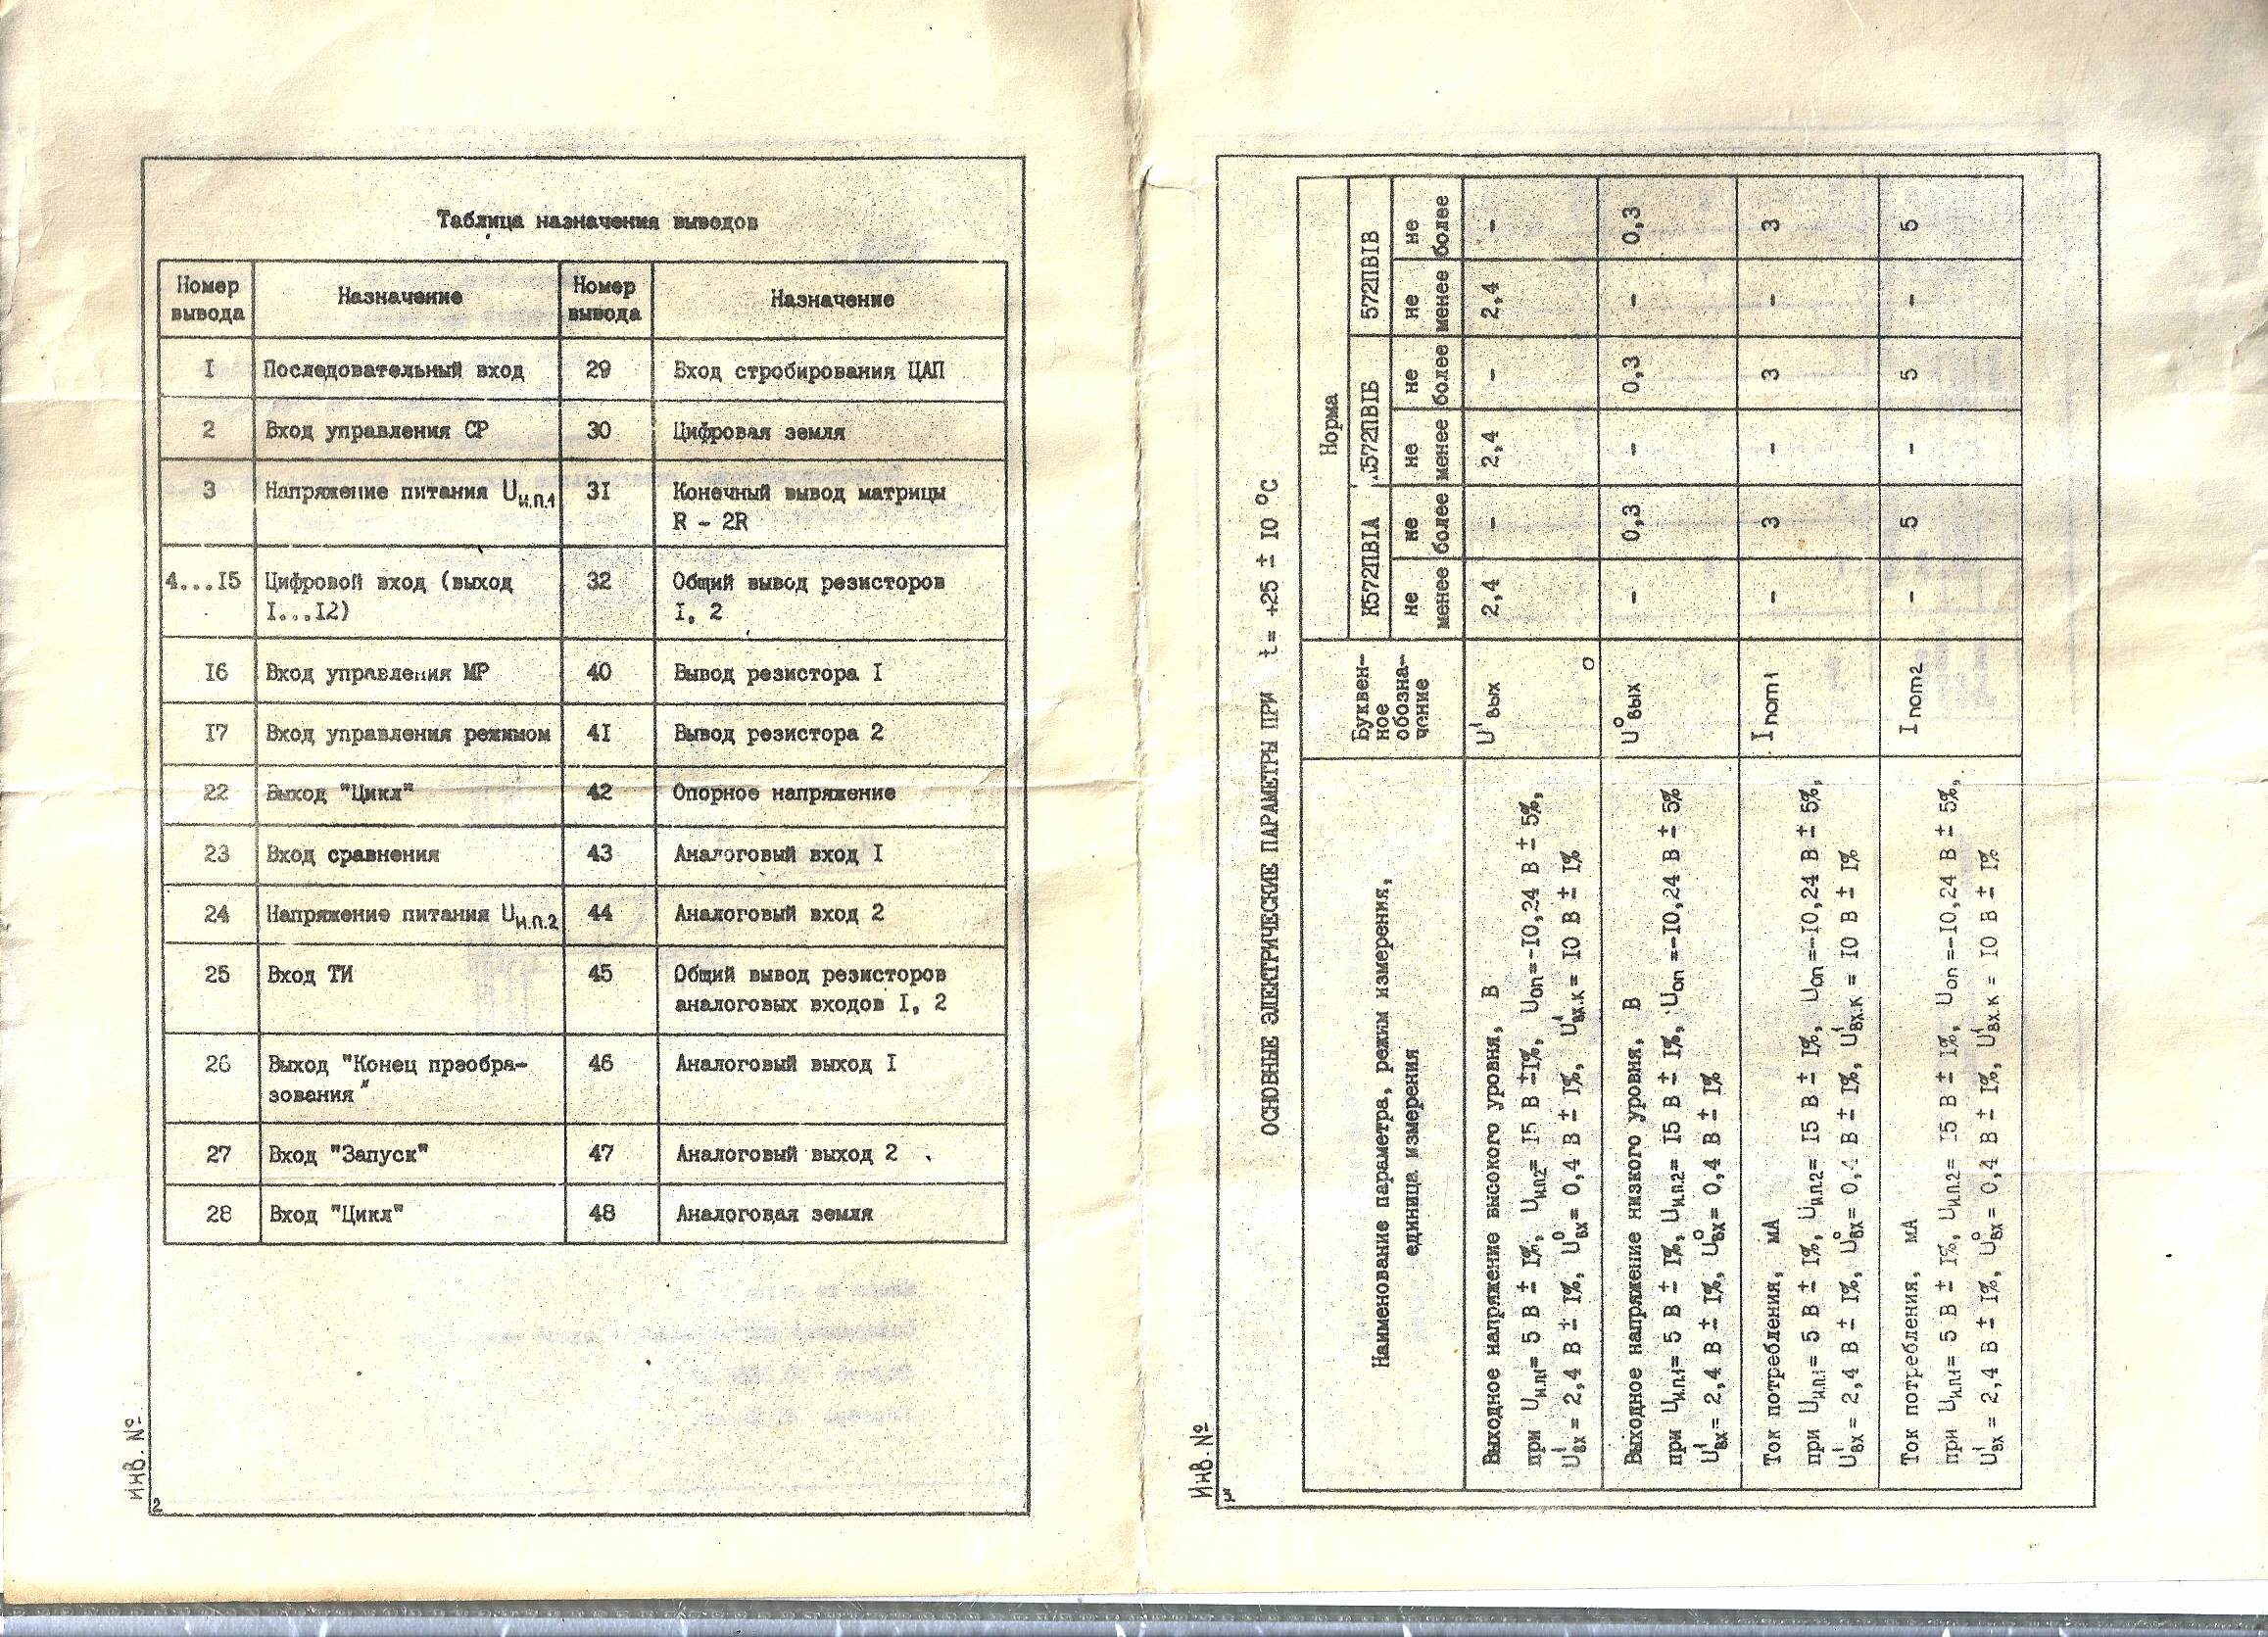 Таблица назначения выводов
Номер вывода | Назначение | Номер вывода | Назначение
I | Последовательный вход | 29 | Вход стробирования ЦАП
2 | Вход управления СР | 30 | Цифровая земля
3 | Напряжение питания Uи.п.1 | 3I | Конечный вывод матрицы R - 2R
4...I5 | Цифровой вход (выход I...I2) | 32 | Общий вывод резисторов I, 2
I6 | Вход управления МР | 40 | Вывод резистора I
I7 | Вход управления режимом | 4I | Вывод резистора 2
22 | Выход "Цикл" | 42 | Опорное напряжение
23 | Вход сравнения | 43 | Аналоговый вход I
24 | Напряжение питания Uи.п.2 | 44 | Аналоговый вход 2
25 | Вход ТИ | 45 | Общий вывод резисторов аналоговых входов I, 2
26 | Выход "Конец преобразования" | 46 | Аналоговый выход I
27 | Вход "Запуск" | 47 | Аналоговый выход 2
28 | Вход "Цикл" | 48 | Аналоговая земля
Инв. №
2
ОСНОВНЫЕ ЭЛЕКТРИЧЕСКИЕ ПАРАМЕТРЫ ПРИ t = +25 ± I0 °С
Наименование параметра, режим измерения, единица измерения | Буквенное обозначение | Норма
К572ПВIА | 572ПВIБ | 572ПВIВ
не менее | не более | не менее | не более | не менее | не более
Выходное напряжение высокого уровня, В | U¹вых | 2,4 | - | 2,4 | - | 2,4 | -
при Uи.п.1= 5 В ± I%, Uи.п.2= I5 В ±I%, Uоп=-I0,24 В ± 5%,
U¹вх = 2,4 В ± I%, U⁰вх= 0,4 В ± I%, U¹вх.к= I0 В ± I%
Выходное напряжение низкого уровня, В | U⁰вых | - | 0,3 | - | 0,3 | - | 0,3
при Uи.п.1= 5 В ± I%, Uи.п.2= I5 В ± I%, Uоп =-I0,24 В ± 5%
U¹вх= 2,4 В ± I%, U⁰вх= 0,4 В ± I%
Ток потребления, мА | I пот1 | - | 3 | - | 3 | - | 3
при Uи.п.1= 5 В ± I%, Uи.п.2= I5 В ± I%, Uоп=-I0,24 В ± 5%,
U¹вх= 2,4 В ± I%, U⁰вх= 0,4 В ± I%, U¹вх.к = I0 В ± I%
Ток потребления, мА | I пот2 | - | 5 | - | 5 | - | 5
при Uи.п.1= 5 В ± I%, Uи.п.2= I5 В ± I%, Uоп=-I0,24 В ± 5%,
U¹вх = 2,4 В ± I%, U⁰вх = 0,4 В ± I%, U¹вх.к = I0 В ± I%
Инв. №